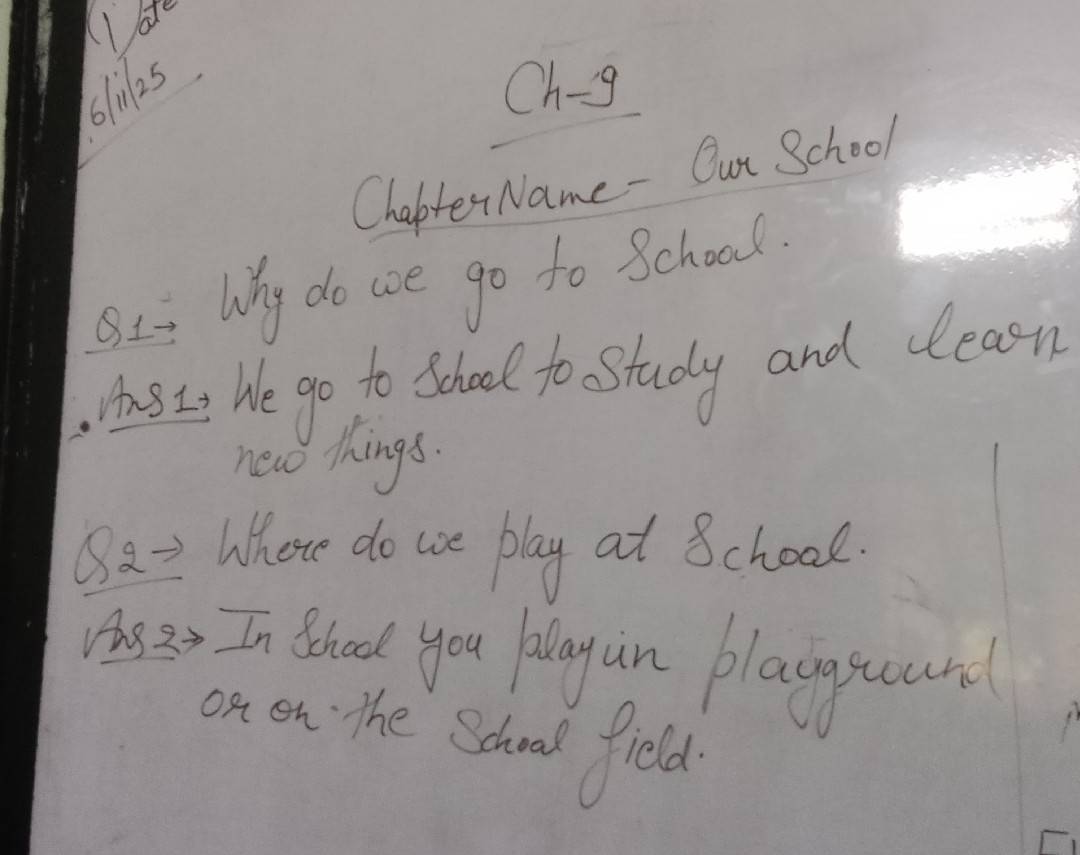 Date
6/11/25
Ch-9
Chapter Name - Our School
Q1→ Why do we go to School.
Ans 1→ We go to School to Study and learn
new things.
Q2→ Where do we play at School.
Ans 2→ In School you play in playgground
or on the School field.